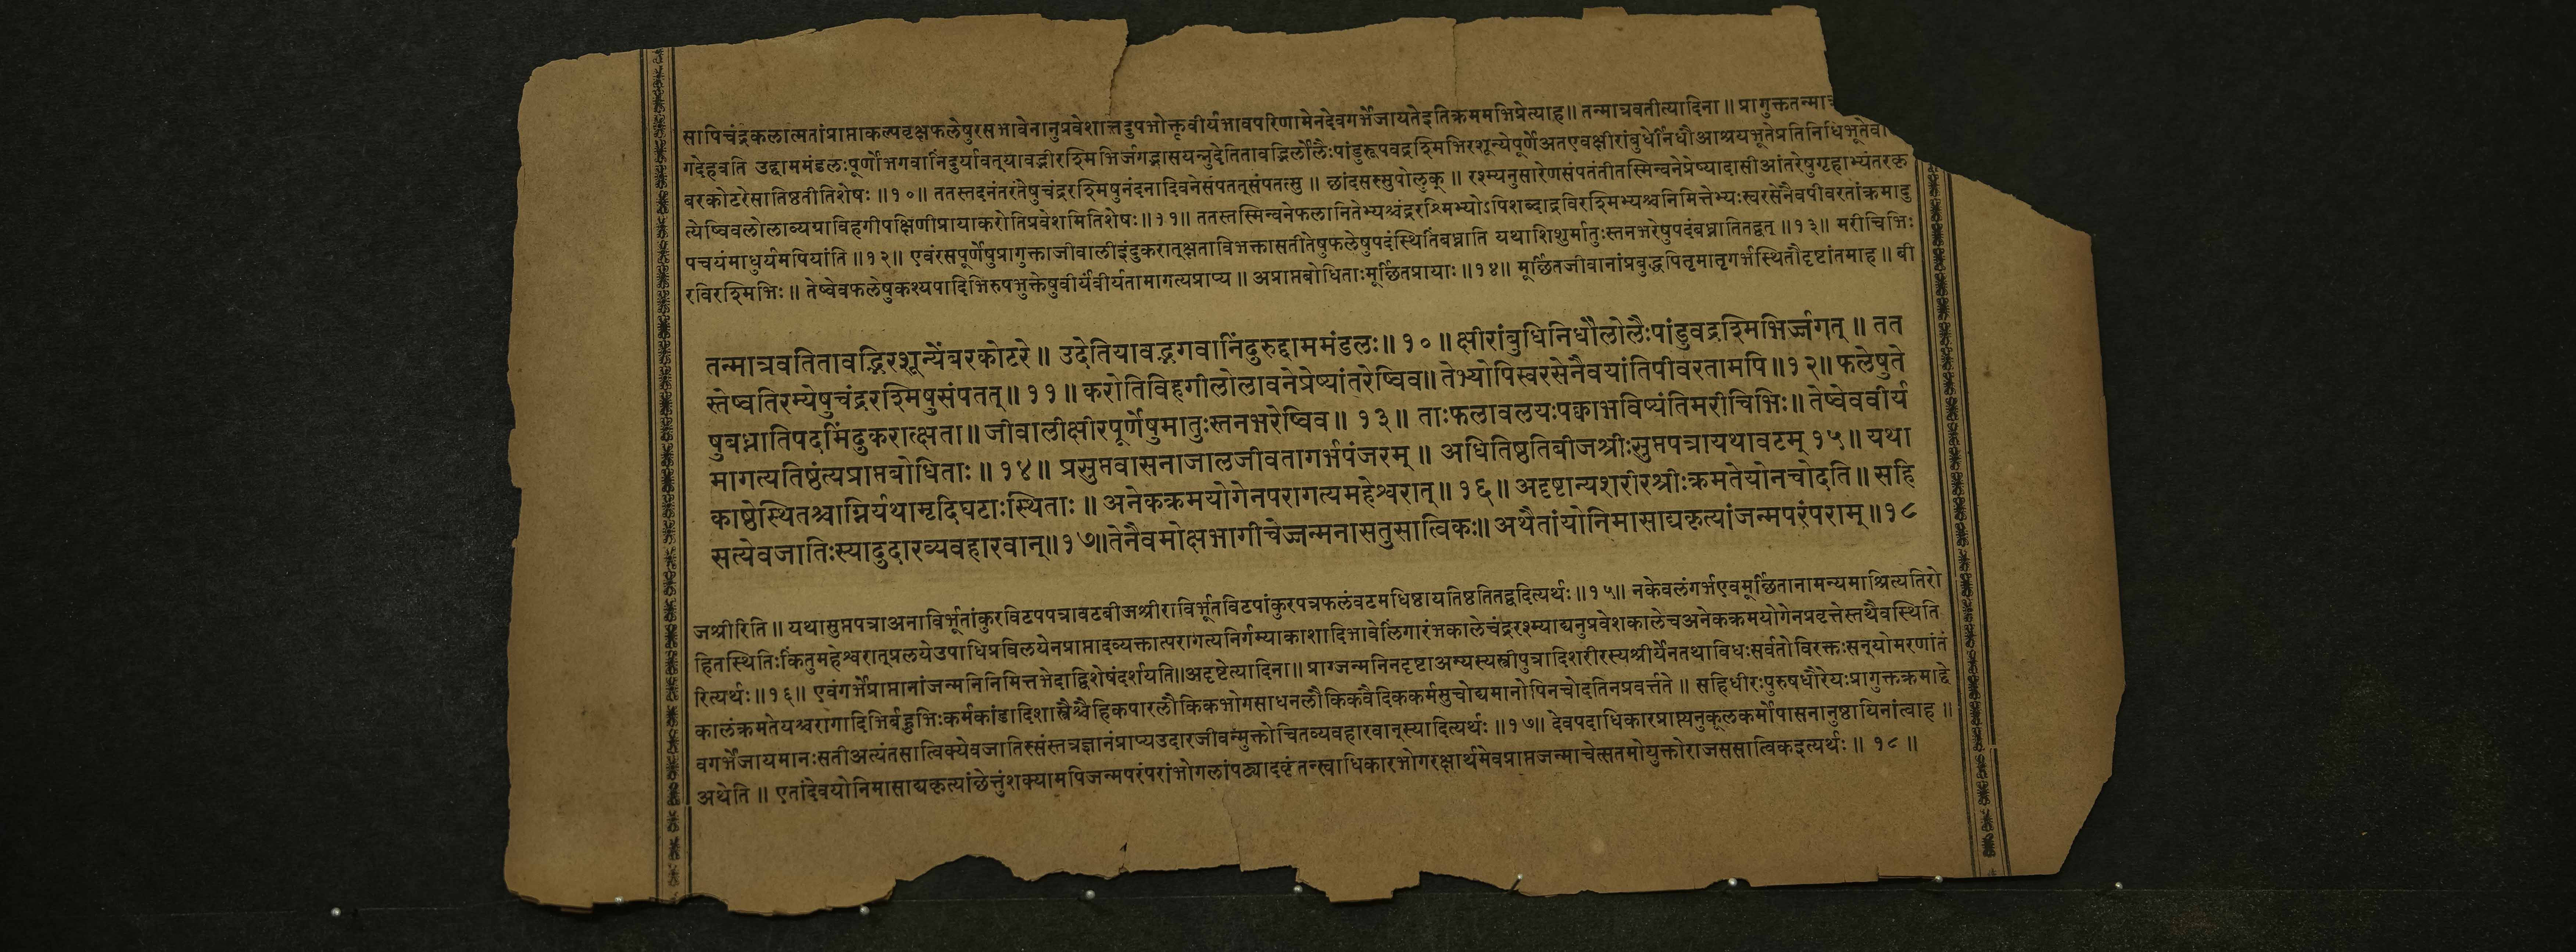 सापिचंद्रकलात्मतांप्राप्ताकल्पवृक्षफलेषुरसभावेनानुप्रवेशात्तदुपभोक्तृवीर्यभावपरिणामेनदेवगर्भेजायतेइतिक्रममभिप्रेत्याह॥ तन्मात्रवतीत्यादिना॥ प्रागुक्ततन्मात्र
गदेहवति उद्दाममंडलःपूर्णोभगवानिंदुर्यावत्यावद्भीरश्मिभिर्जगद्भासयन्नुदेतितावद्भिर्लोलैःपांडुरूपवद्रश्मिभिरशून्येपूर्णेअतएवक्षीरांबुधेर्निधौआश्रयभूतेप्रतिनिधिभूतेवा
बरकोटरेसातिष्ठतीतिशेषः॥१०॥ ततस्तदनंतरंतेषुचंद्ररश्मिषुनंदनादिवनेसंपतत्संपतत्सु॥ छांदसस्सुपोलुक्॥ रश्म्यनुसारेणसंपतंतीतस्मिन्वनेप्रेष्यादासीआंतरेषुगृहाभ्यंतरकृ
त्येष्विवलोलाव्यग्राविहगीपक्षिणीप्रायाकरोतिप्रवेशमितिशेषः॥११॥ ततस्तस्मिन्वनेफलानितेभ्यश्चंद्ररश्मिभ्योऽपिशब्दाद्रविरश्मिभ्यश्चनिमित्तेभ्यःस्वरसेनैवपीवरतांक्रमादु
पचयंमाधुर्यमपियांति॥१२॥ एवंरसपूर्णेषुप्रागुक्ताजीवालीइंदुकरात्क्षताविभक्तासतीतेषुफलेषुपदंस्थितिंबध्नाति यथाशिशुर्मातुःस्तनभरेषुपदंबध्नातितद्वत्॥१३॥ मरीचिभिः
रविरश्मिभिः॥ तेष्वेवफलेषुकश्यपादिभिरुपभुक्तेषुवीर्येवीर्यतामागत्यप्राप्य॥ अप्राप्तबोधिताःमूर्छितप्रायाः॥१४॥ मूर्छितजीवानांप्रबुद्धपितृमातृगर्भस्थितौदृष्टांतमाह॥ बी
तन्मात्रवतितावद्भिरशून्येंबरकोटरे॥ उदेतियावद्भगवानिंदुरुद्दाममंडलः॥१०॥क्षीरांबुधिनिधौलोलैःपांडुवद्रश्मिभिर्ज्जगत्॥ तत
स्तेष्वतिरम्येषुचंद्ररश्मिषुसंपतत्॥११॥करोतिविहगीलोलावनेप्रेष्यांतरेष्विव॥तेभ्योपिस्वरसेनैवयांतिपीवरतामपि॥१२॥फलेषुते
षुबध्नातिपदमिंदुकरात्क्षता॥जीवालीक्षीरपूर्णेषुमातुःस्तनभरेष्विव॥ १३॥ ताःफलावलयःपक्वाभविष्यंतिमरीचिभिः॥तेष्वेववीर्य
मागत्यतिष्ठंत्यप्राप्तबोधिताः॥१४॥ प्रसुप्तवासनाजालजीवतागर्भपंजरम्॥ अधितिष्ठतिबीजश्रीःसुप्तपत्रायथावटम् १५॥ यथा
काष्ठेस्थितश्चाग्निर्यथामृदिघटाःस्थिताः॥ अनेकक्रमयोगेनपरागत्यमहेश्वरात्॥१६॥अदृष्टान्यशरीरश्रीःक्रमतेयोनचोदति॥सहि
सत्येवजातिःस्यादुदारव्यवहारवान्॥१७॥तेनैवमोक्षभागीचेज्जन्मनासतुसात्विकः॥अथैतांयोनिमासाद्यकृत्यांजन्मपरंपराम्॥१८
जश्रीरिति॥ यथासुप्तपत्राअनाविर्भूतांकुरविटपपत्रावटबीजश्रीराविर्भूतविटपांकुरपत्रफलंवटमधिष्ठायतिष्ठतितद्वदित्यर्थः॥१५॥ नकेवलंगर्भएवमूर्छितानामन्यमाश्रित्यतिरो
हितस्थितिःकिंतुमहेश्वरात्प्रलयेउपाधिप्रविलयेनप्राप्तादव्यक्तात्परागत्यनिर्गम्याकाशादिभावेलिंगारंभकालेचंद्ररश्म्याद्यनुप्रवेशकालेचअनेकक्रमयोगेनप्रवृत्तेस्तथैवस्थिति
रित्यर्थः॥१६॥ एवंगर्भेप्राप्तानांजन्मनिनिमित्तभेदाद्विशेषंदर्शयति॥अदृष्टेत्यादिना॥ प्राग्जन्मनिनदृष्टाअन्यस्यस्त्रीपुत्रादिशरीरस्यश्रीर्येनतथाविधःसर्वतोविरक्तःसन्योमरणांतं
कालंक्रमतेयश्चरागादिभिर्बहुभिःकर्मकांडादिशास्त्रैश्चैहिकपारलौकिकभोगसाधनलौकिकवैदिककर्मसुचोद्यमानोपिनचोदतिनप्रवर्त्तते॥ सहिधीरःपुरुषधौरेयःप्रागुक्तक्रमाद्दे
वगर्भेजायमानःसतीअत्यंतसात्विक्येवजातिस्संस्तत्रज्ञानंप्राप्यउदारजीवन्मुक्तोचितव्यवहारवान्स्यादित्यर्थः॥१७॥ देवपदाधिकारप्राप्त्यनुकूलकर्मोपासनानुष्ठायिनांत्वाह॥
अथेति॥ एतांदेवयोनिमासाद्यकृत्यांछेत्तुंशक्यामपिजन्मपरंपरांभोगलांपट्यादवृंतन्स्वाधिकारभोगरक्षार्थमेवप्राप्तजन्माचेत्सतमोयुक्तोराजससात्विकइत्यर्थः॥ १८॥